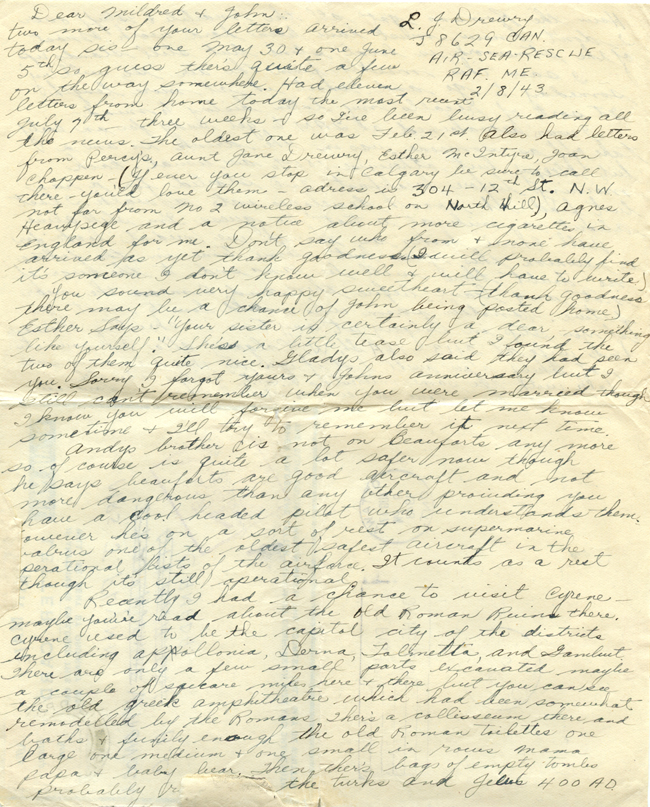 Dear Mildred & John:
L. J. Drewry
J 8629 CAN.
AIR-SEA-RESCUE
RAF. ME
2/8/43
two more of your letters arrived
today sis - one May 30 & one June
5th so guess there's quite a few
on the way somewhere. Had eleven
letters from home today the most recent
July 9th three weeks - so I've been busy reading all
the news. The oldest one was Feb. 21st. Also had letters
from Percy's, aunt Jane Drewry, Esther McIntyre, Joan
Chappen - (If ever you stop in Calgary be sure to call
there you'd love them - adress is 304 - 12th St. N.W.
not far from No 2 wireless school on North Hill), agnes
Heavysege and a notice about more cigarettes in
England for me. Don't say who from & none have
arrived as yet thank goodness (I will probably find
it's someone I don't know well & will have to write)
You sound very happy sweetheart - thank goodness
there may be a chance of John being posted home)
Esther says "Your sister is certainly a dear - something
like yourself." She's a little tease but I found the
two of them quite nice. Gladys also said they had seen
you. Sorry I forgot yours & Johns anniversary but I
still can't remember when you were married though
I know you will forgive me but let me know
sometime & I'll try to remember it next time.
Andys brother is not on Beauforts any more
so of course is quite a lot safer now though
he says beauforts are good aircraft and not
more dangerous than any other providing you
have a cool headed pilot who understands them.
owever he's on a sort of rest on supermarine
alrus one of the oldest, safest aircraft in the
perational lists of the airforce. It sounds as a rest
though its still operational.
Recently I had a chance to visit Cyrene -
maybe you've read about the old Roman Ruins there.
Cyrene used to be the capitol city of the districts
including appollonia, Derna, Talmetta, and Gambut
There are only a few small parts excavated maybe
a couple of square miles here & there but you can see
the old greek amphitheatre which had been somewhat
remodelled by the Romans. There's a collisseum there and
baths & funily enough the old Roman toilettes one
large one medium & one small in rows mama
papa & baby bear. Then there's bags of empty tombs
probably the turks and 400 A.D.